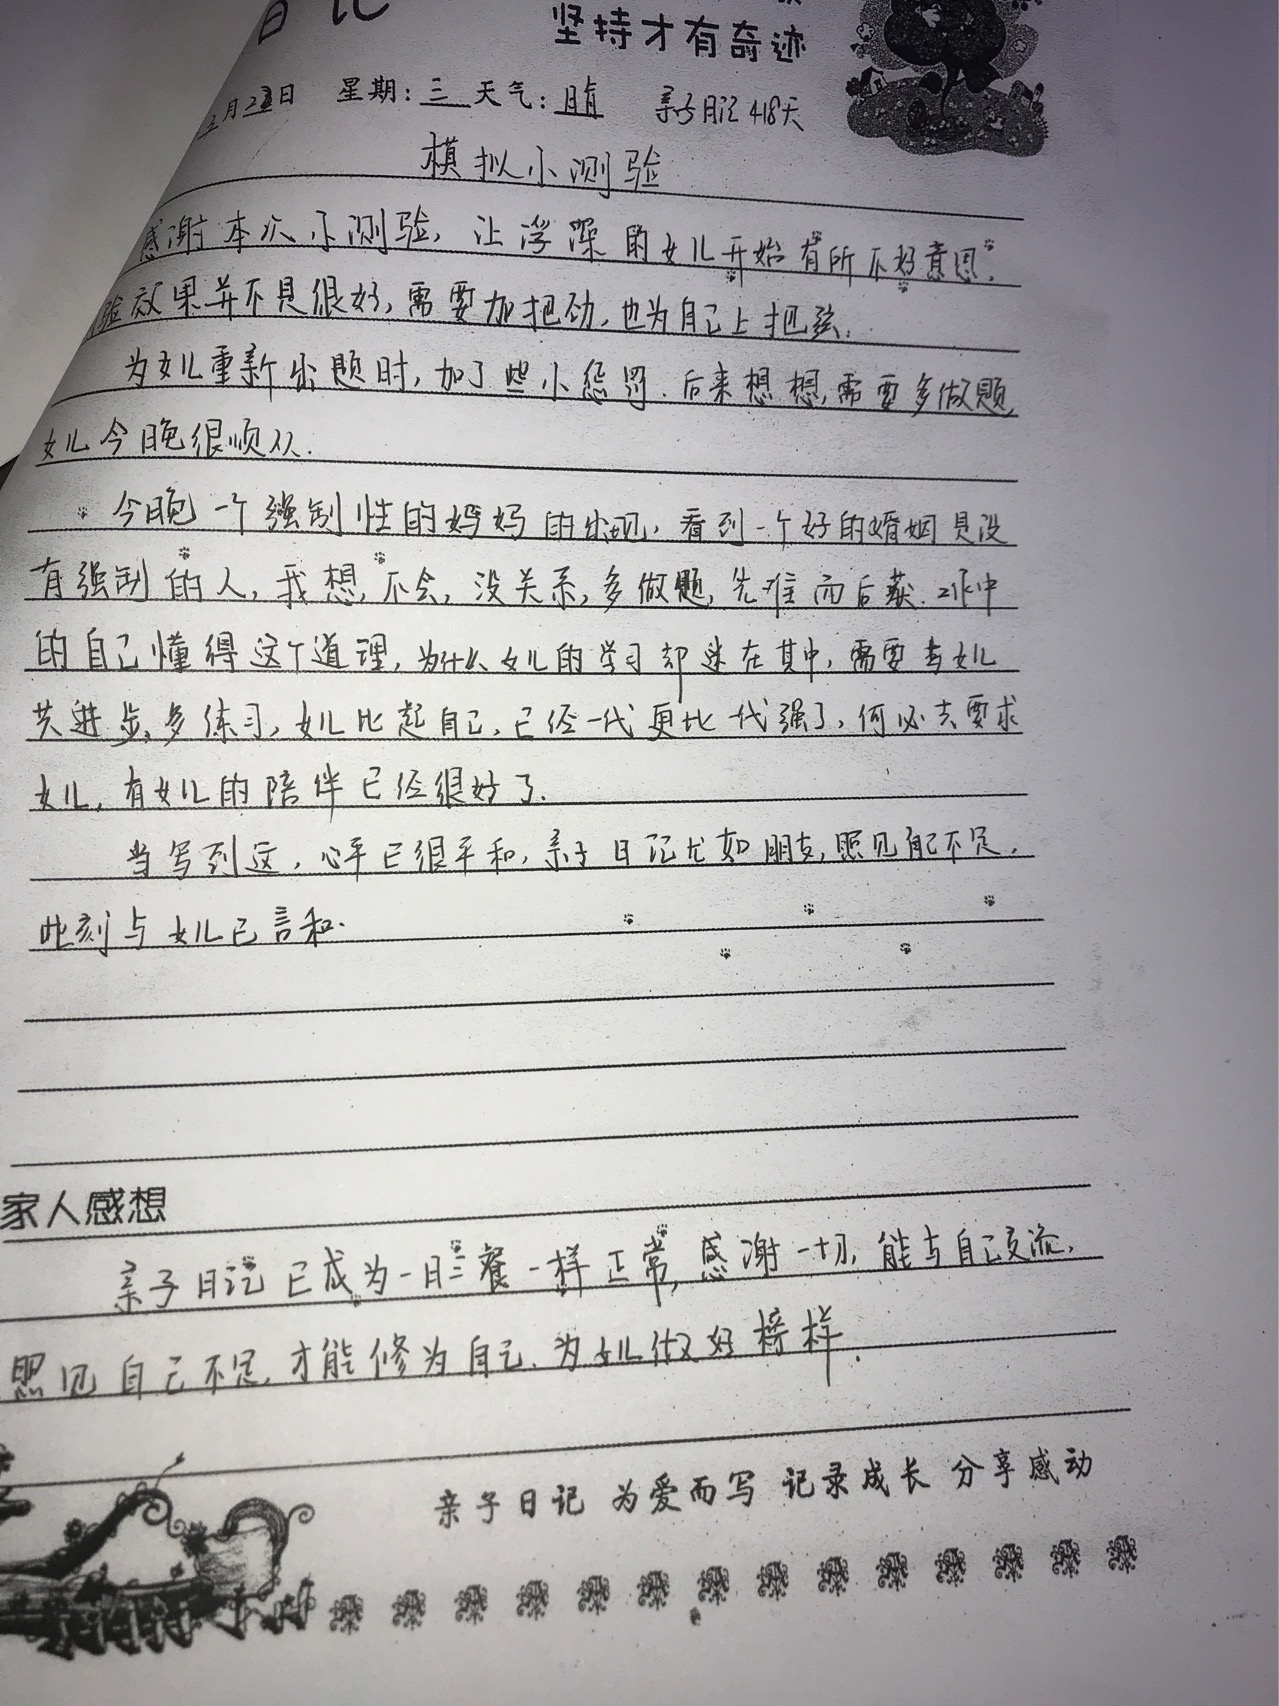 日记
坚持才有奇迹
月23日 星期:三 天气:晴 亲子日记418天
模拟小测验
感谢本次小测验,让浮深的女儿开始有所不好意思,
验效果并不是很好,需要加把劲,也为自己上把弦.
为女儿重新出题时,加了些小惩罚.后来想想,需要多做题,
女儿今晚很顺从.
今晚一个强制性的妈妈的出现,看到一个好的婚姻是没
有强制的人,我想,不会,没关系,多做题,先难而后获.
的自己懂得这个道理,为什么女儿的学习却迷在其中,需要与女儿
共进步,多练习,女儿比起自己,已经一代更比一代强了,何必去要求
女儿,有女儿的陪伴已经很好了.
当写到这,心平已很平和,亲子日记尤如朋友,照见自己不足,
此刻与女儿已言和.
家人感想
亲子日记已成为一日三餐一样正常,感谢一切,能与自己交流,
照见自己不足,才能修为自己.为女儿做好榜样.
亲子日记 为爱而写 记录成长 分享感动